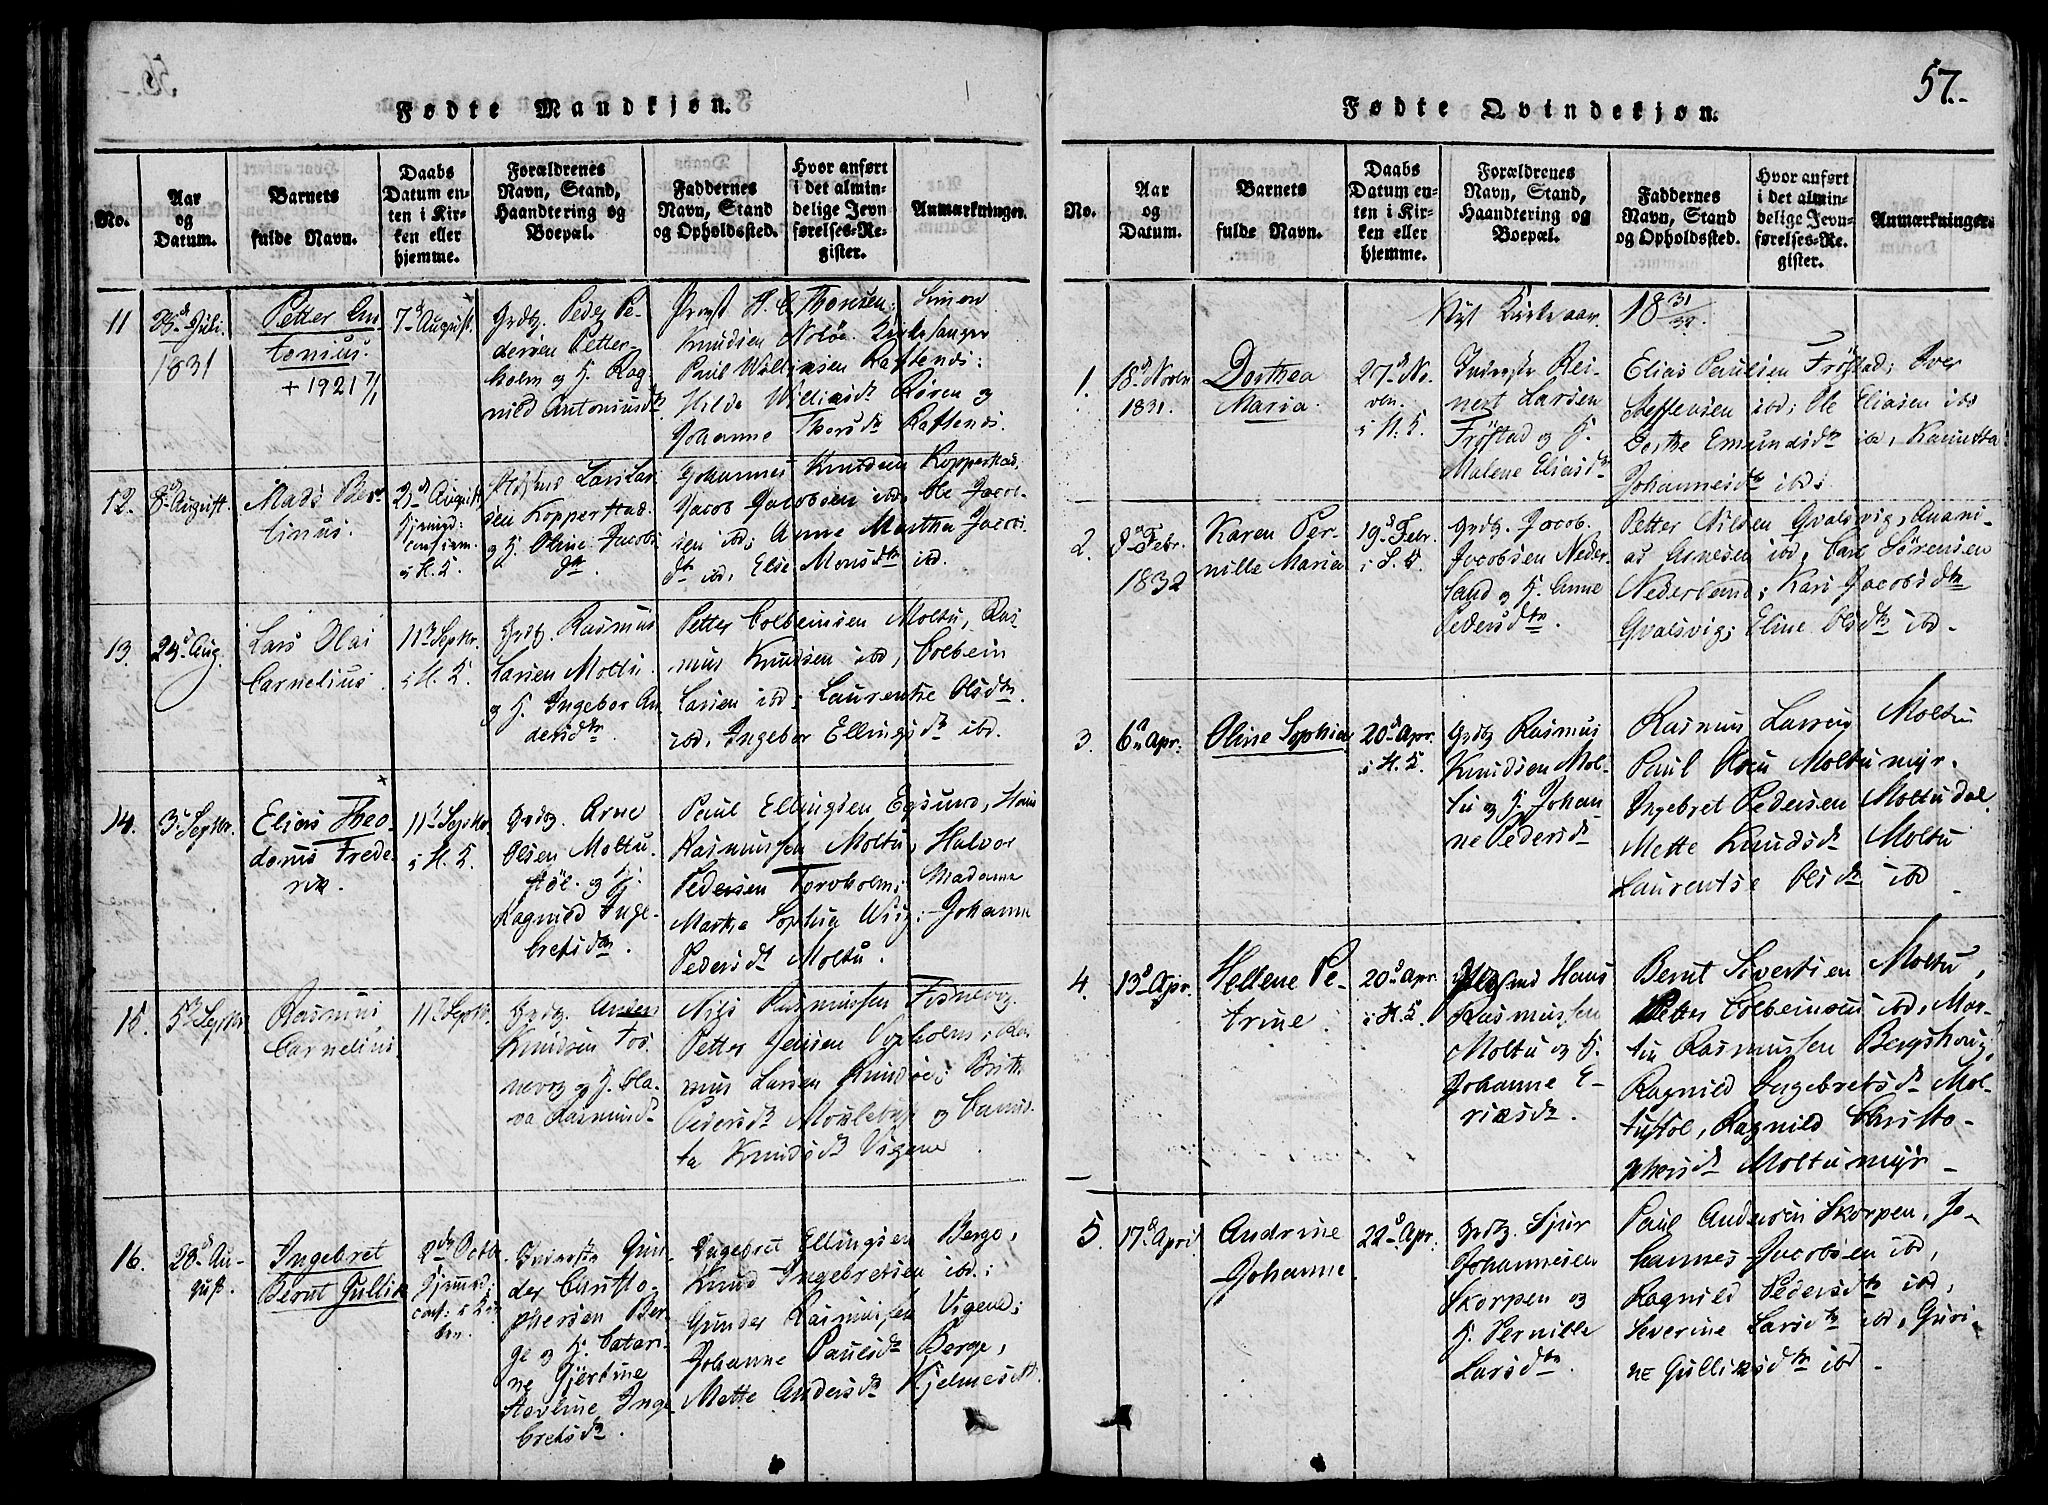 Fødte Mandkjøn.
No.
Aar
og
Datum.
Barnets
fulde Navn.
Daabs
Datum en-
ten i Kir-
ken eller
hjemme.
Forældrenes
Navn, Stand,
Haandtering og
Boepæl.
Faddernes
Navn, Stand
og Opholdssted.
Hvor anført
i det almin-
delige Jevn
førelses-Re-
gister.
Anmærkninger.
11
1831
Petter An
tonius.
+ 1921 7/1
7de August.
Peder Pe-
dersen Petter-
holm og H. Rag
nild Antoniusdtr
Provst H. C. Thonsen; Simon
Knudsen Notøe. Kirkesanger
Paul Williksen Rattenes:
Hilde Williksdtr Røren og
Johanne Thorsdtr Rattenes.
12.
8de August.
Mads Ber
tinus.
August
i H. K.
Lars Lar
sen Kopperstad
og H. Oline Jacobs
dtr.
Johannes Knudsen Kopperstad,
Jacob Jacobsen ibd, Ole Jacob-
sen ibd; Anne Martha Jacobs
dtr ibd, Else Monsdtr ibd.
13.
Aug.
Lars Olai
Cornelius.
11te Septbr.
i H. K.
Grdbr. Rasmus
Larsen Moltu
og H. Ingebor An
dersdtr
Petter Colbeinsen Moltu, Ras
mus Knudsen ibd, Colbein
Larsen ibd; Laurentse Olsdtr
ibd, Ingebor Ellingsdtr ibd.
14.
3die Septbr.
Elias Theo
dorus Frede-
rik.
11te Septbr
i H. K.
Grdbr. Arne
Olsen Moltu.
støl. og H.
Ragnild Inge-
bretsdtr.
Paul Ellingsen Egsund, Hans
Rasmussen Moltu, Halvor
Pedersen Torvholm; Madame
Marthe Sophia Wiig; Johanne
Pedersdtr Moltu.
15.
5te Septbr
Rasmus
Cornelius.
11te Septbr.
Grdbr. Anders
Knudsen Fos
nevog og H. Ola-
va Rasmusdtr
Nils Rasmussen Fosnevog
Petter Jensen Vogholm; Ras
mus Larsen Runde; Brithe
Pedersdtr Moldebust og Canut
ta Knudsdtr Vigene
16.
28de Au-
gust.
Ingebret
Bernt Gullik
2den Octbr
hjemmed;
Gun
der Christo
phersen Ber-
ge og H. Catari
ne Gjertine
Severine Inge
bretsdtr.
Ingebret Ellingsen Berge,
Knud Ingebretsen ibd.;
Gunder Rasmussen Vigene;
Johanne Paulsdtr Berge,
Mette Andersdtr Kjelmeset.
57.-
Fødte Qvindekjøn.
No.
Aar
og
Datum.
Barnets
fulde Navn.
Daabs
Datum en-
ten i Kir-
ken eller
hjemme.
Forældrenes
Navn, Stand,
Haandtering og
Boepæl.
Faddernes
Navn, Stand
og Opholdssted.
Hvor anført
i det almin-
delige Jevn-
førelses-Re.
gister.
Anmærkninger.
Nyt Kirkeaar. 18 31/32.
1.
18de Novbr
1831.
Dorthea
Maria.
27de No.
vbr.
i H. K.
Inderste Rei-
nert Larsen
Frøstad og H.
Malene Eliasdtr
Elias Paulsen Frøstad; Iver
Steffensen ibd; Ole Eliasen ibd
Dorthe Emundsdtr ibd, Kanutta
Johannesdtr ibd;
2.
Febr.
1832
Karen Per-
nille Maria
19de Febr.
Grdbr. Jacob
Jacobsen Neder
land og H. Anne
Pedersdtr.
Petter Nilsen Qvalsvig, Anani-
as Arnesen ibd, Carl Sørensen
Nederland; Kari Jacobsdtr
Qvalsvig; Eline Olsdtr ibd.
3.
6te Apr:
Oline Sophia
20de Apr.
i H. K.
Grdbr Rasmus
Knudsen Mol-
tu og H. Johan-
ne Pedersdtr
Rasmus Larsen Moltu
Paul Moltumyr.
Ingebret Pedersen Moltudal.
Mette Knudsdtr Moltu
Laurentse Olsdtr ibd
4.
13de Apr.
Hellene Pe-
trine.
20de Apr
i H. K.
Hans
Rasmussen
Moltu og H.
Johanne E-
riksdtr.
Bernt Sivertsen Moltu,
Petter Colbeinsen ibd, Mar-
tin Rasmussen Bergshoug;
Ragnild Ingebretsdtr Mol-
tustøl, Ragnild Christo-
phersdtr Moltumyr
5.
17de April
Andrine
Johanne
22de Apr.
Grdbr. Sjur
Johannesen
Skorpen og
H. Pernille
Larsdtr.
Paul Andersen Skorpen, Jo-
hannes Jacobsen ibd,
Ragnild Pedersdtr ibd,
Severine Larsdtr ibd, Guri-
ne Gulliksdtr ibd -